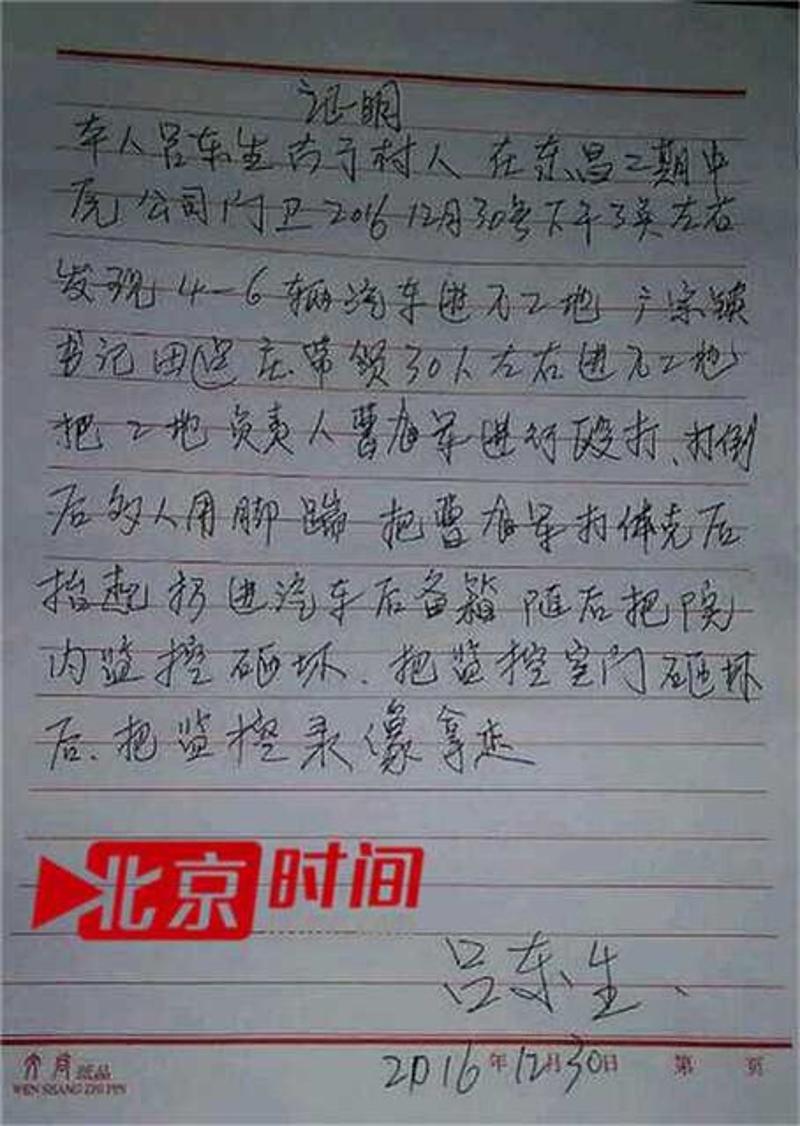 证明
本人吕东生 古于村人 在东昌二期中
虎公司门卫2016 12月30号下午3点左右
发现4-6辆汽车进入工地 广宗镇
书记田 庄带领30人左右进入工地
把工地负责人曹海军进行殴打、打倒
后多人用脚踹 把曹海军打休克后
抬起扔进汽车后备箱 随后把院
内监控砸坏、把监控室门砸坏
后、把监控录像拿走
北京时间
吕东生、
2016年12月30日 第 页
纸品
WEN SHANG ZHI PIN